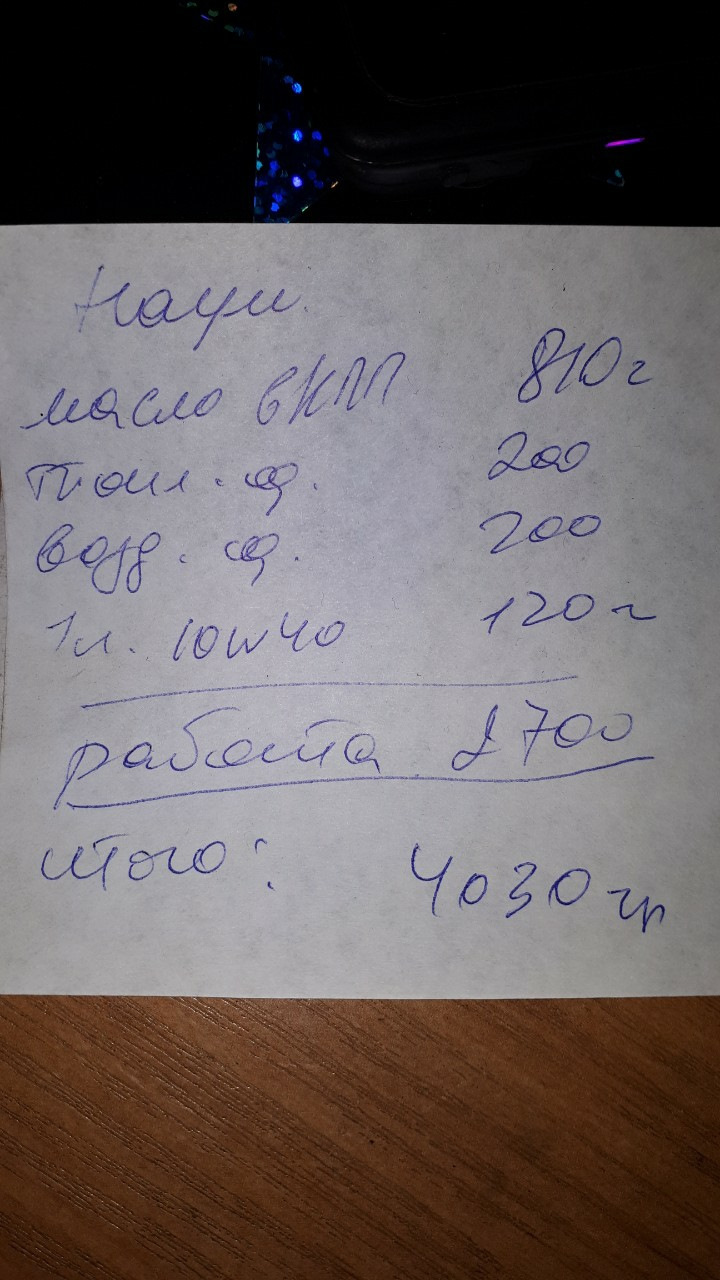 масло в КПП 810г
топл. ф. 200
возд. ф. 200
1л. 10W40 120г
работа 2700
итого: 4030гр